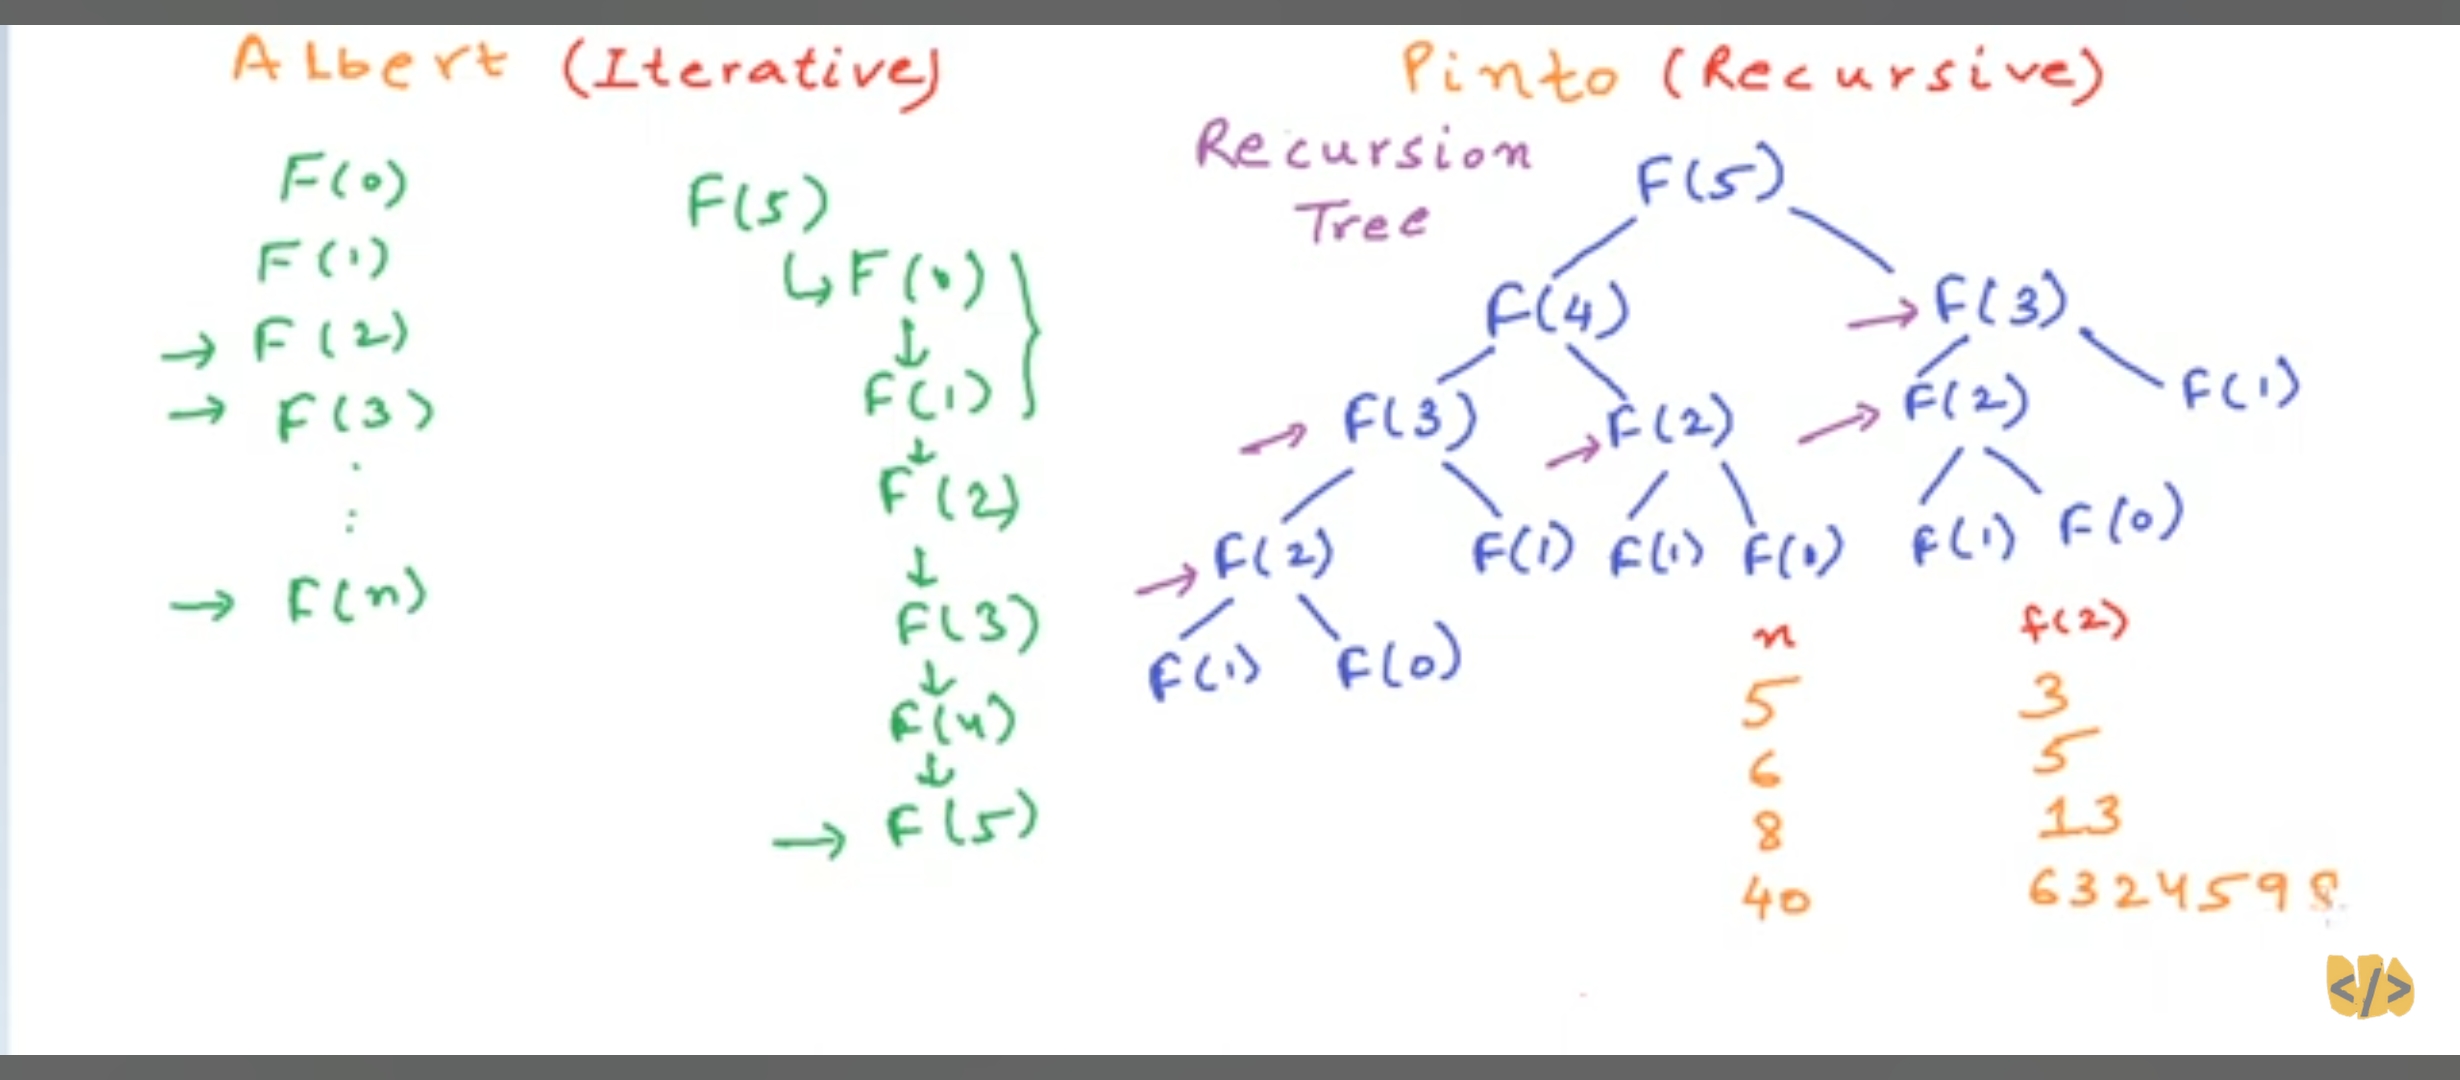 Albert (Iterative)
F(0)
F(1)
→ F(2)
→ F(3)
:
→ F(n)
F(5)
↳ F(0) }
↓
F(1)
↓
F(2)
↓
F(3)
↓
F(4)
↓
→ F(5)
Pinto (Recursive)
Recursion
Tree
F(5)
F(4) → F(3)
→ F(3) → F(2) → F(2) F(1)
→ F(2) F(1) F(1) F(0) F(1) F(0)
F(1) F(0)
n f(2)
5 3
6 5
8 13
40 6324598
</>